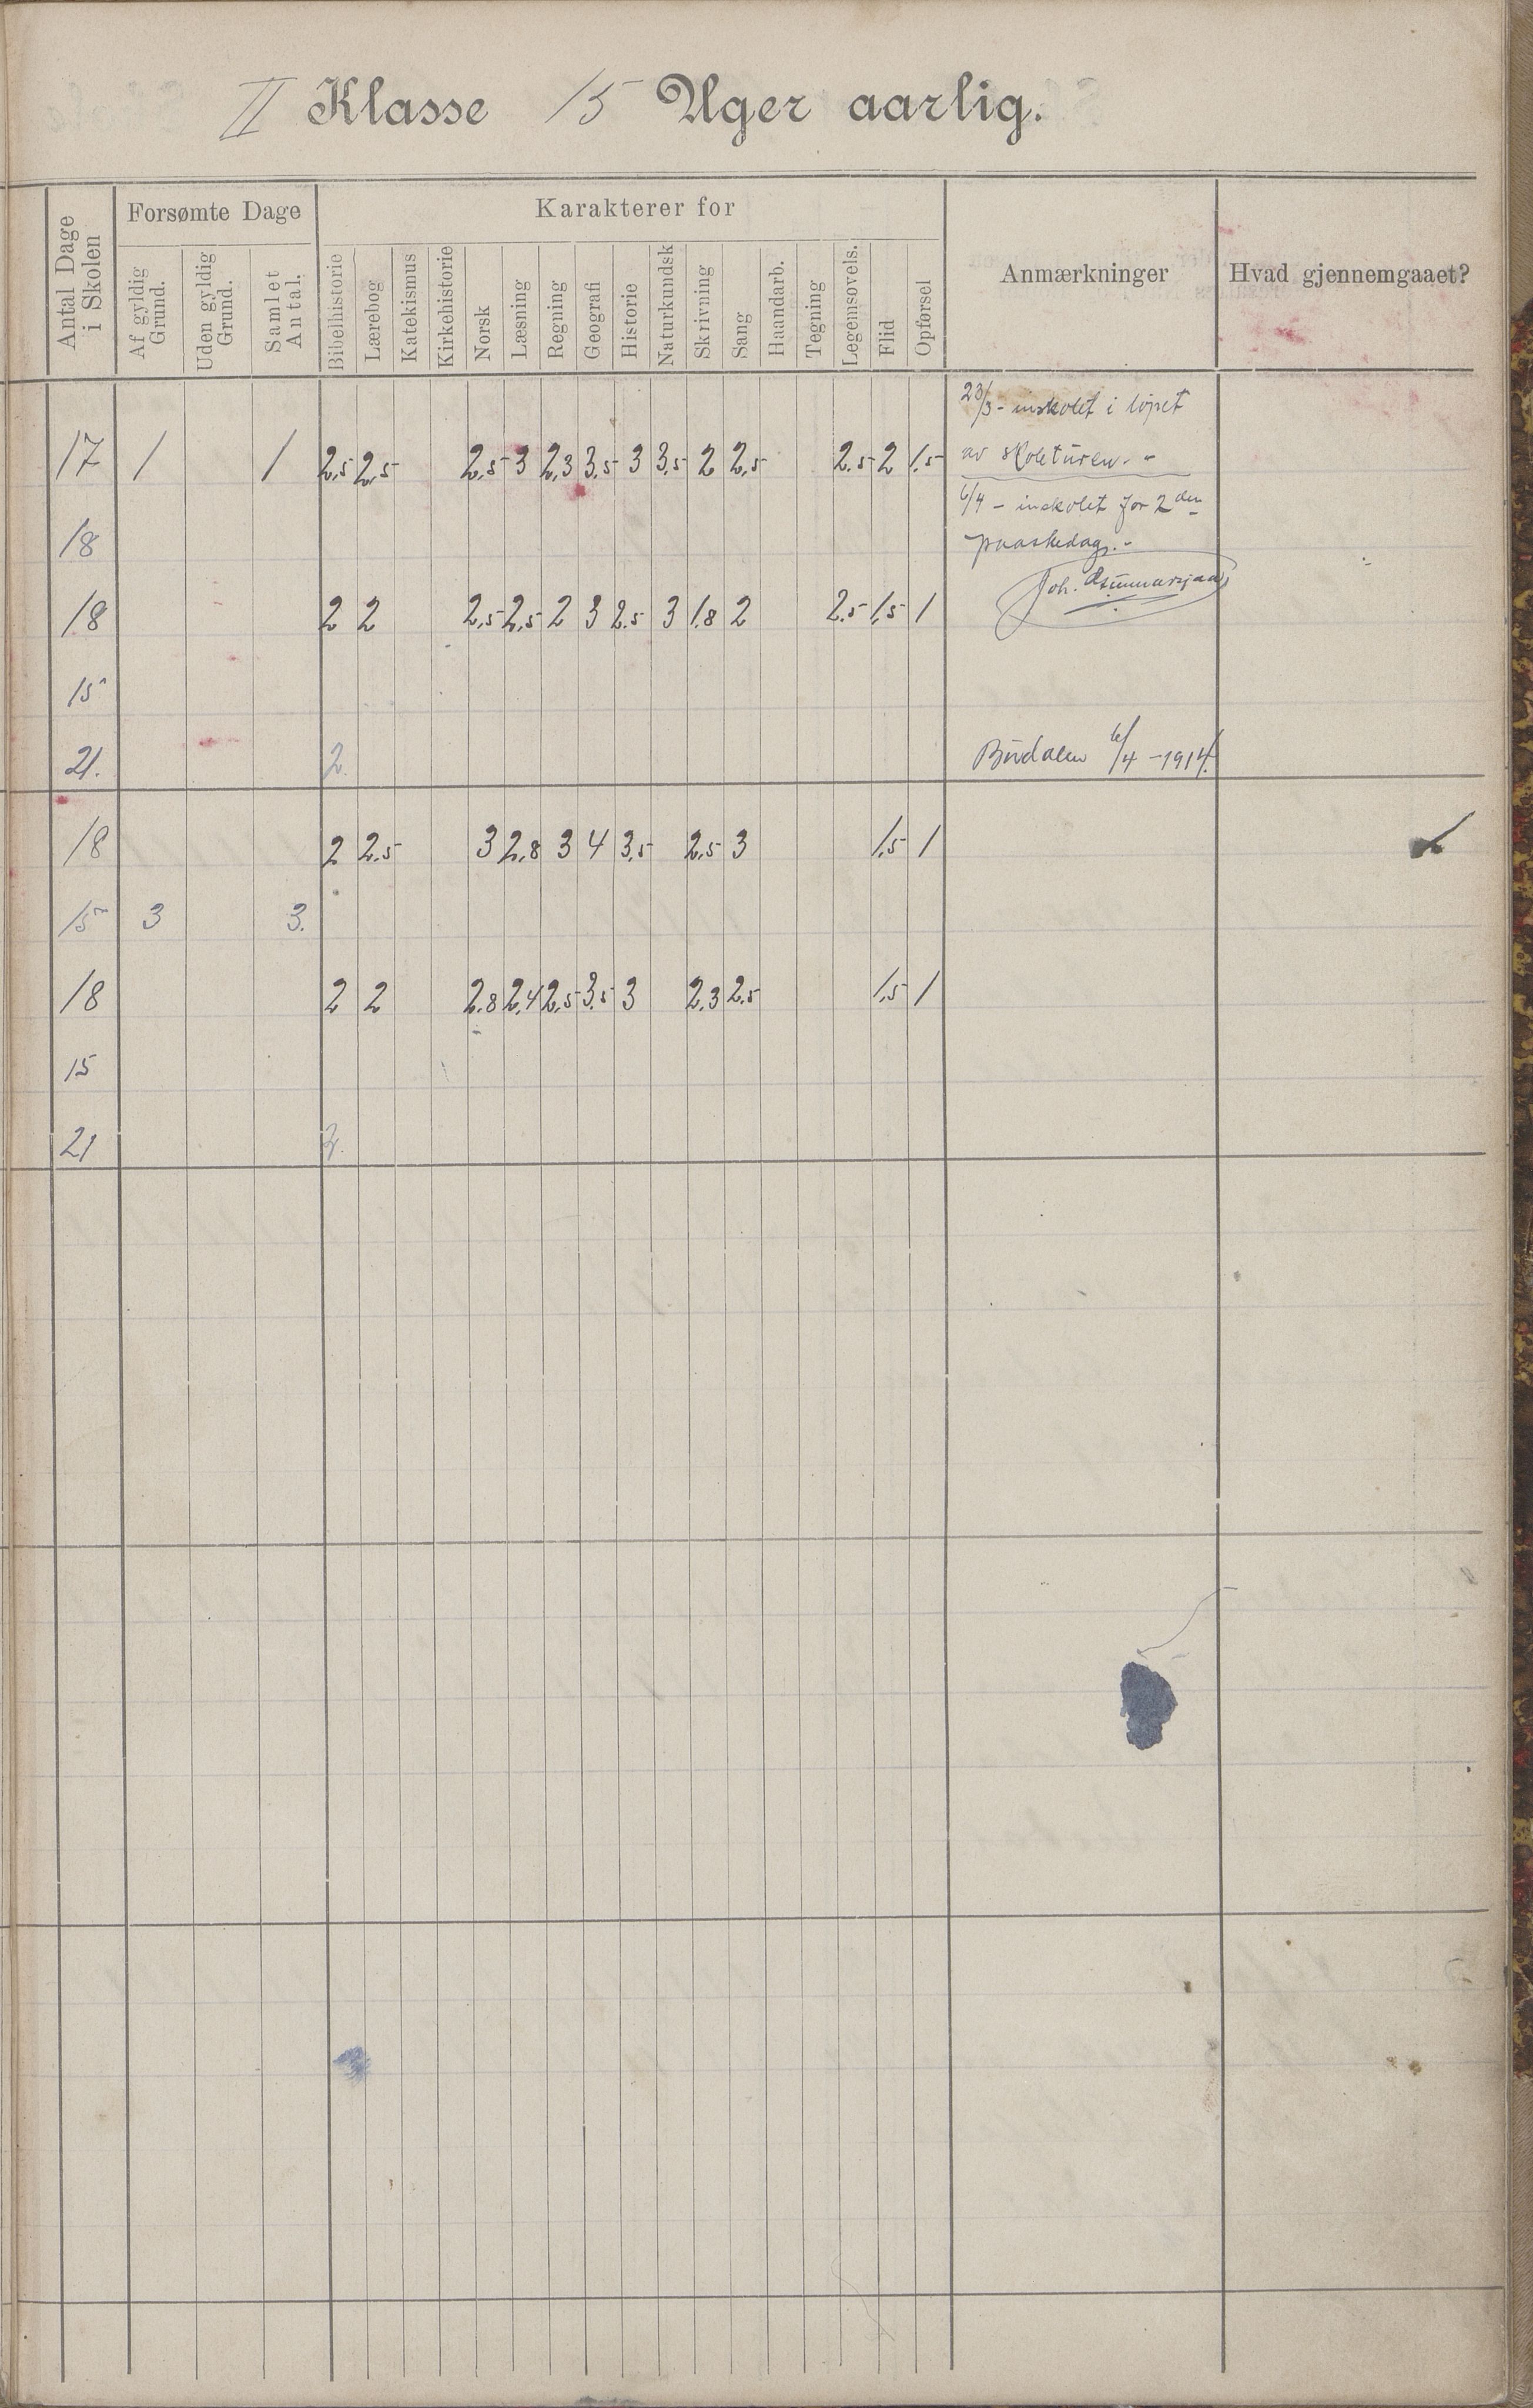 II Klasse 15 Uger aarlig.
Antal Dage i Skolen
Forsømte Dage
Karakterer for
Anmærkninger
Hvad gjennemgaaet?
Af gyldig Grund.
Uden gyldig Grund.
Samlet Antal.
Bibelhistorie
Lærebog
Katekismus
Kirkehistorie
Norsk
Læsning
Regning
Geografi
Historie
Naturkundsk
Skrivning
Sang
Haandarb.
Tegning
Legemsovels.
Flid
Opførsel
23/3 - inskolet i løpet
17 1 1 2,5 2,5 2,5 3 2,3 3,5 3 3,5 2 2,5 2.5 2 1.5 av skoleturen. -
6/4 - inskolet for 2den
18 paaskedag. -
Joh.
18 2 2 2,5 2,5 2 3 2.5 3 1.8 2 2.5 1,5 1
15
21. 2. 6/4 - 1914.
18 2 2.5 3 2,8 3 4 3,5 2,5 3 1,5 1
15 3 3.
18 2 2 2.8 2,4 2,5 3,5 3 2,3 2,5 1,5 1
15
21